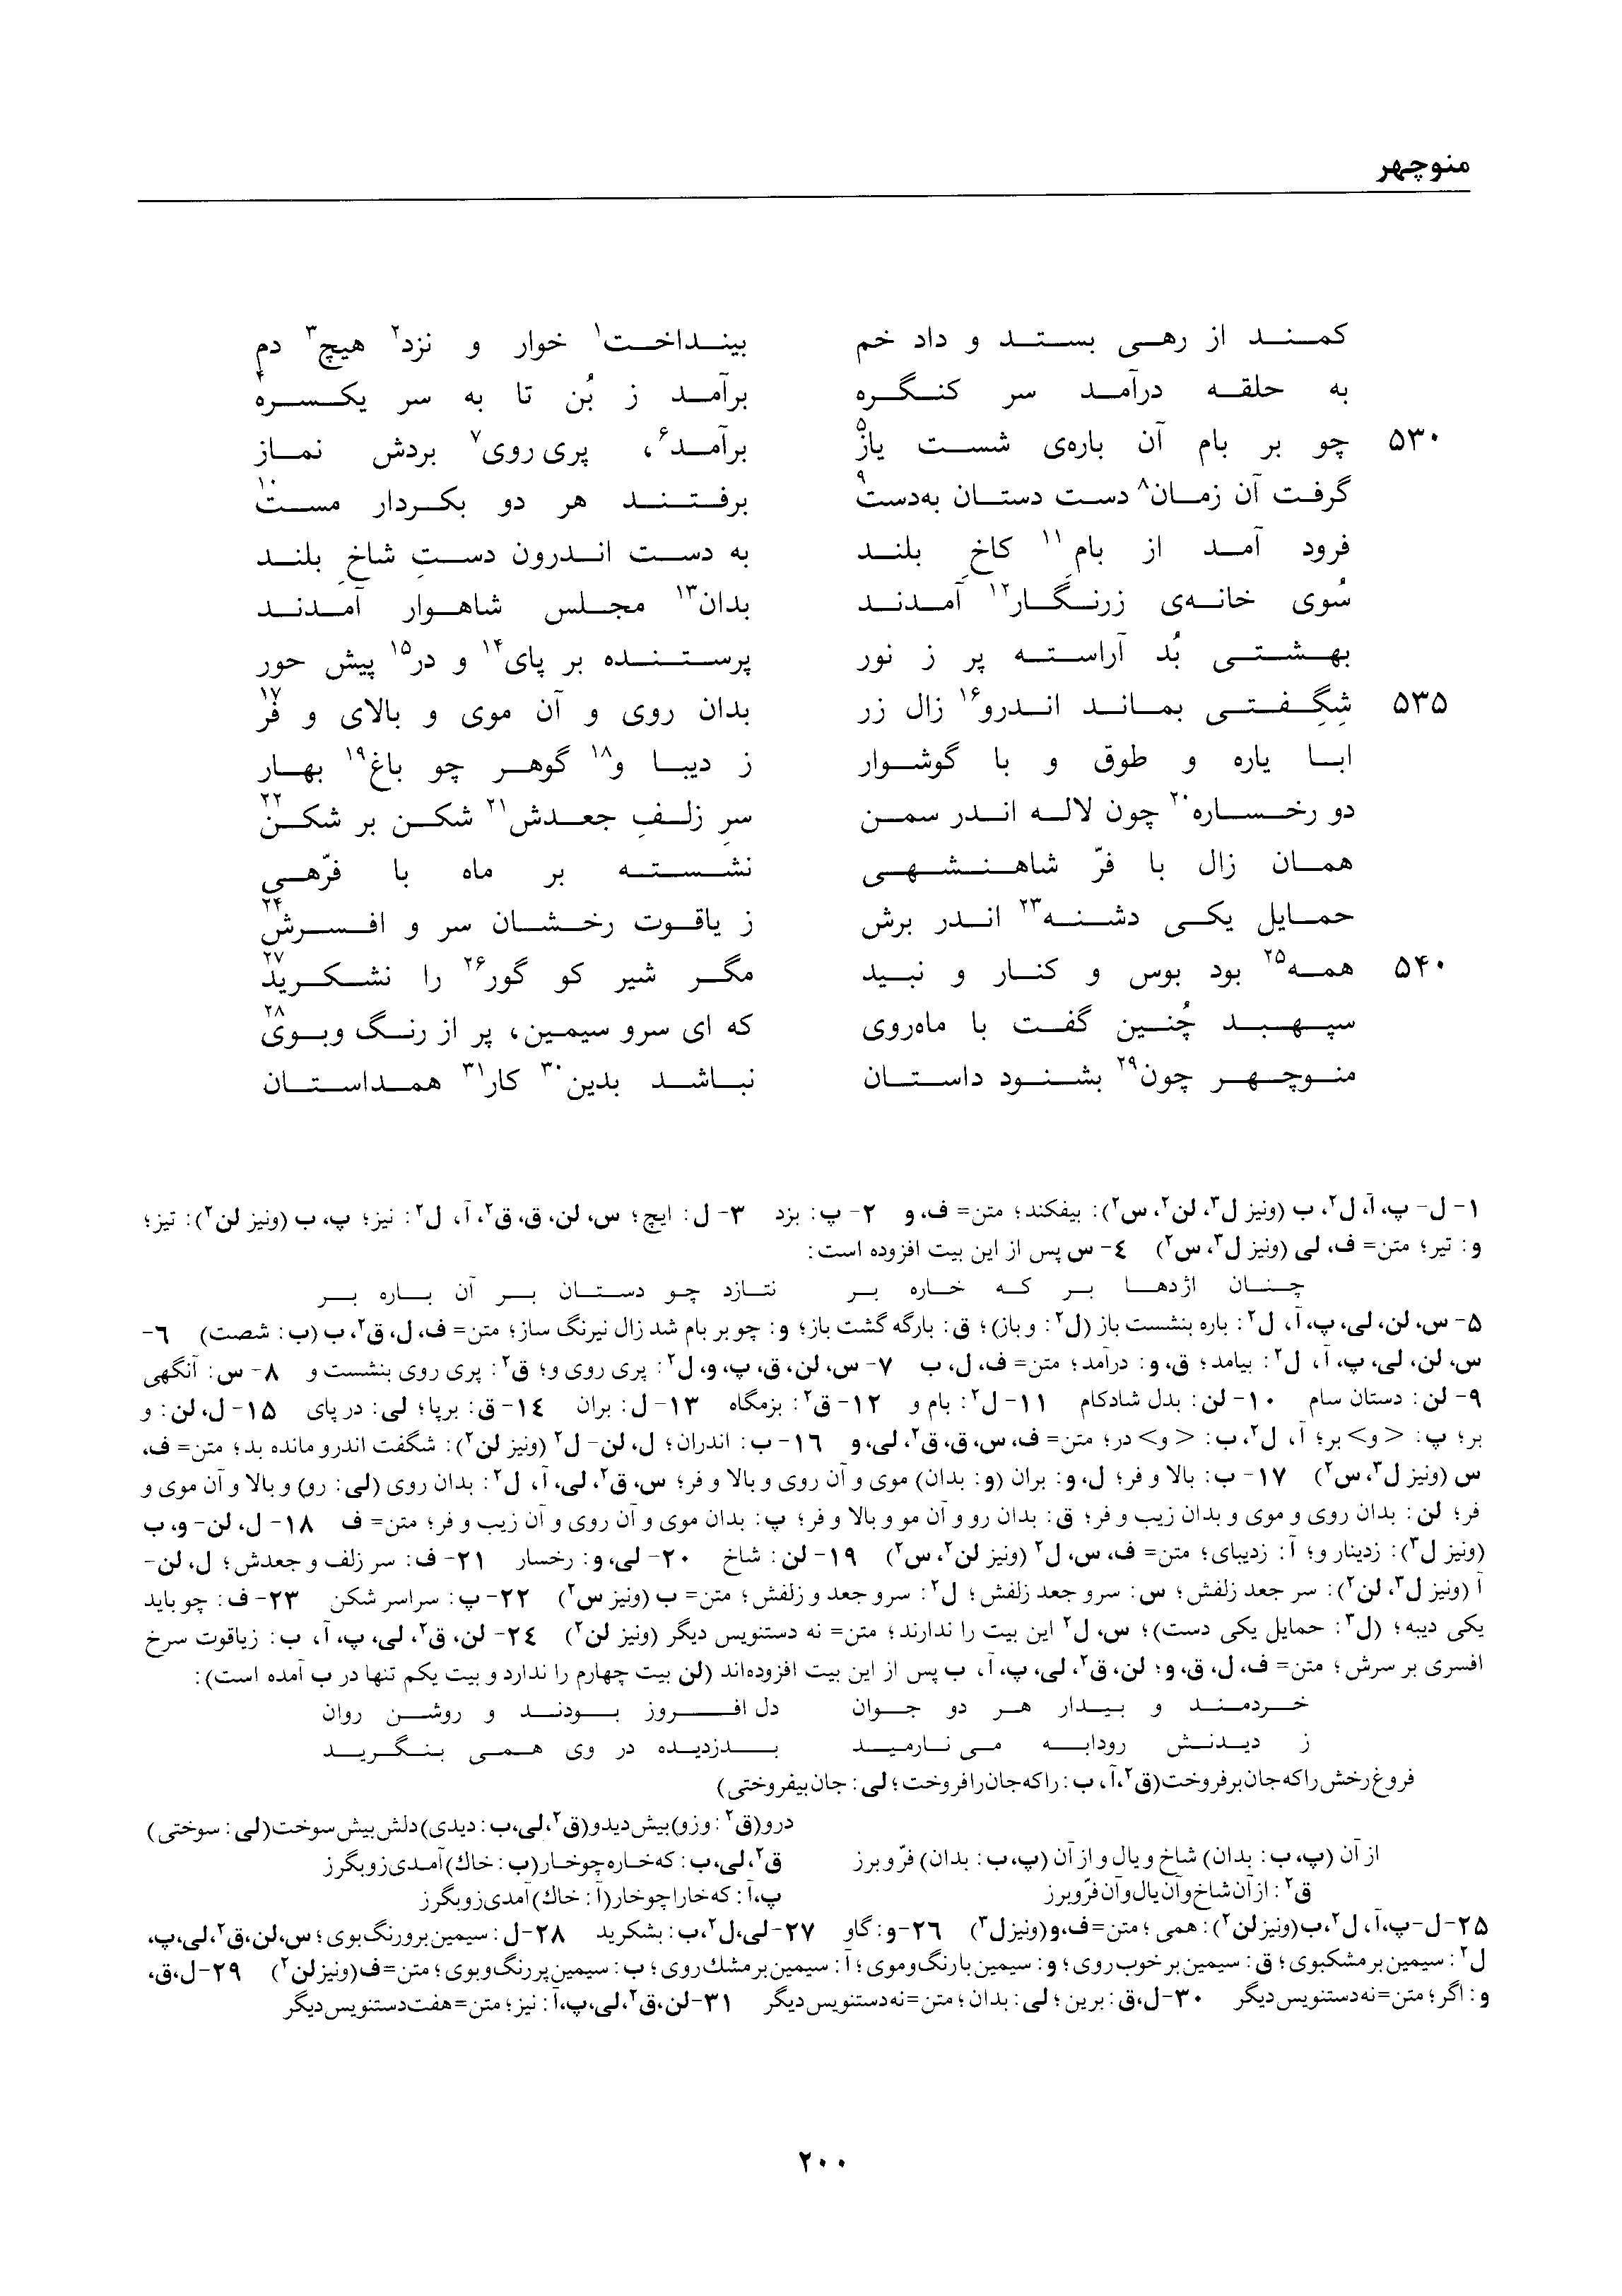 منوچهر
کمند از رهی بستد و داد خم بینداخت۱ خوار و نزد۲ هیچ۳ دم
به حلقه درآمد سر کنگره برآمد ز بُن تا به سر یکسره۴
۵۳۰ چو بر بام آن باره‌ی شست یاز۵ برآمد۶، پری روی۷ بردش نماز
گرفت آن زمان۸ دست دستان به‌دست۹ برفتند هر دو بکردار مست۱۰
فرود آمد از بامِ۱۱ کاخِ بلند به دست اندرون دستِ شاخِ بلند
سُوی خانه‌ی زرنگار۱۲ آمدند بدان۱۳ مجلس شاهوار آمدند
بهشتی بُد آراسته پر ز نور پرستنده بر پای۱۴ و در۱۵ پیش حور
۵۳۵ شِگِفتی بماند اندرو۱۶ زال زر بدان روی و آن موی و بالای و فر۱۷
ابا یاره و طوق و با گوشوار ز دیبا و۱۸ گوهر چو باغ۱۹ بهار
دو رخساره۲۰ چون لاله اندر سمن سرِ زلفِ جعدش۲۱ شکن بر شکن۲۲
همان زال با فرّ شاهنشهی نشسته بر ماه با فرّهی
حمایل یکی دشنه۲۳ اندر برش ز یاقوت رخشان سر و افسرش۲۴
۵۴۰ همه۲۵ بود بوس و کنار و نبید مگر شیر کو گور۲۶ را نشکرید۲۷
سپهبد چُنین گفت با ماه‌روی که ای سرو سیمین، پر از رنگ وبوی۲۸
منوچهر چون۲۹ بشنود داستان نباشد بدین۳۰ کار۳۱ همداستان
۱- ل- پ، آ، ل۲، ب (ونیز ل۳، لن۲، س۲): بیفکند؛ متن= ف، و ۲- پ: بزد ۳- ل: ایچ؛ س، لن، ق، ق۲، آ، ل۲: نیز؛ پ، ب (ونیز لن۲): تیز؛
و: تیر؛ متن= ف، لی (ونیز ل۳، س۲) ۴- س پس از این بیت افزوده است:
چنان اژدها بر که خاره بر نتازد چو دستان بر آن باره بر
۵- س، لن، لی، پ، آ، ل۲: باره بنشست باز (ل۲: و باز)؛ ق: بارگه گشت باز؛ و: چو بر بام شد زال نیرنگ ساز؛ متن= ف، ل، ق۲، ب (ب: شصت) ۶-
س، لن، لی، پ، آ، ل۲: بیامد؛ ق، و: درآمد؛ متن= ف، ل، ب ۷- س، لن، ق، پ، و، ل۲: پری روی و؛ ق۲: پری روی بنشست و ۸- س: آنگهی
۹- لن: دستان سام ۱۰- لن: بدل شادکام ۱۱- ل۲: بام و ۱۲- ق۲: بزمگاه ۱۳- ل: بران ۱۴- ق: برپا؛ لی: در پای ۱۵- ل، لن: و
بر؛ پ: <و> بر؛ آ، ل۲، ب: <و> در؛ متن= ف، س، ق، ق۲، لی، و ۱۶- ب: اندران؛ ل، لن- ل۲ (ونیز لن۲): شگفت اندرو مانده بد؛ متن= ف،
س (ونیز ل۳، س۲) ۱۷- ب: بالا و فر؛ ل، و: بران (و: بدان) موی و آن روی و بالا و فر؛ س، ق۲، لی، آ، ل۲: بدان روی (لی: رو) و بالا و آن موی و
فر؛ لن: بدان روی و موی و بدان زیب و فر؛ ق: بدان رو و آن مو و بالا و فر؛ پ: بدان موی و آن روی و آن زیب و فر؛ متن= ف ۱۸- ل، لن- و، ب
(ونیز ل۳): زدینار و؛ آ: زدیبای؛ متن= ف، س، ل۲ (ونیز لن۲، س۲) ۱۹- لن: شاخ ۲۰- لی، و: رخسار ۲۱- ف: سر زلف و جعدش؛ ل، لن-
آ (ونیز ل۳، لن۲): سر جعد زلفش؛ س: سرو جعد زلفش؛ ل۲: سرو جعد و زلفش؛ متن= ب (ونیز س۲) ۲۲- پ: سراسر شکن ۲۳- ف: چو باید
یکی دیبه؛ (ل۳: حمایل یکی دست)؛ س، ل۲ این بیت را ندارند؛ متن= نه دستنویس دیگر (ونیز لن۲) ۲۴- لن، ق۲، لی، پ، آ، ب: زیاقوت سرخ
افسری بر سرش؛ متن= ف، ل، ق، و؛ لن، ق۲، لی، پ، آ، ب پس از این بیت افزوده‌اند (لن بیت چهارم را ندارد و بیت یکم تنها در ب آمده است):
خردمند و بیدار هر دو جوان دل افروز بودند و روشن روان
ز دیدنش رودابه می نارمید بدزدیده در وی همی بنگرید
فروغ رخش را که جان برفروخت (ق۲، آ، ب: را که جان را فروخت؛ لی: جان بیفروختی)
درو (ق۲: وزو) بیش دیدو (ق۲، لی، ب: دیدی) دلش بیش سوخت (لی: سوختی)
از آن (پ، ب: بدان) شاخ و یال و از آن (پ، ب: بدان) فرّ و برز ق۲، لی، ب: که خاره چو خار (ب: خاك) آمدی زو بگرز
ق۲: از آن شاخ و آن یال و آن فرّ و برز پ، آ: که خارا چو خار (آ: خاك) آمدی زو بگرز
۲۵- ل- پ، آ، ل۲، ب (ونیز لن۲): همی؛ متن= ف، و (ونیز ل۳) ۲۶- و: گاو ۲۷- لی، ل۲، ب: بشکرید ۲۸- ل: سیمین برورنگ بوی؛ س، لن، ق۲، لی، پ،
ل۲: سیمین بر مشکبوی؛ ق: سیمین بر خوب روی؛ و: سیمین بارنگ و موی؛ آ: سیمین بر مشك روی؛ ب: سیمین پر رنگ و بوی؛ متن= ف (ونیز لن۲) ۲۹- ل، ق،
و: اگر؛ متن= نه دستنویس دیگر ۳۰- ل، ق: برین؛ لی: بدان؛ متن= نه دستنویس دیگر ۳۱- لن، ق۲، لی، پ، آ: نیز؛ متن= هفت دستنویس دیگر
۲۰۰